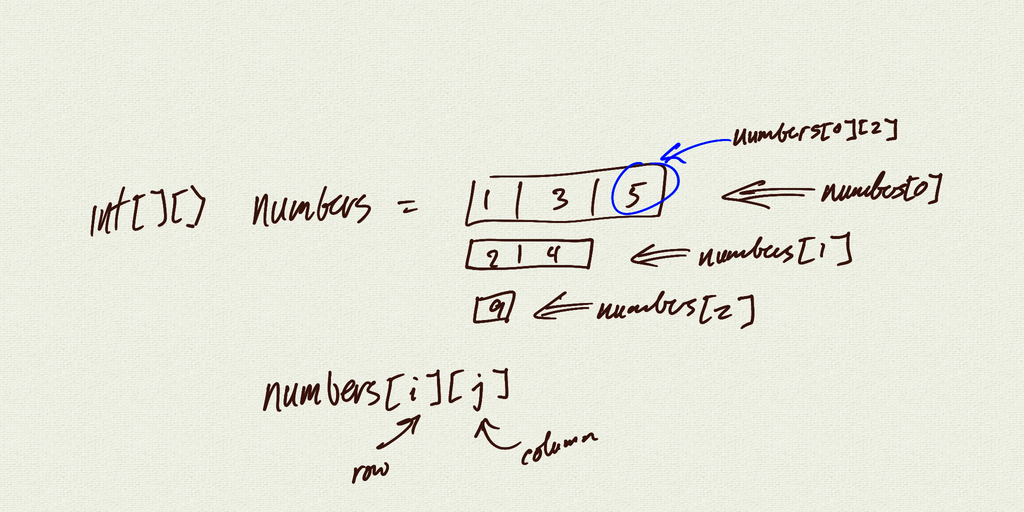 numbers[0][2]
int[][] numbers = 1 | 3 | 5 numbers[0]
2 | 4 numbers[1]
9 numbers[2]
numbers[i][j]
row column